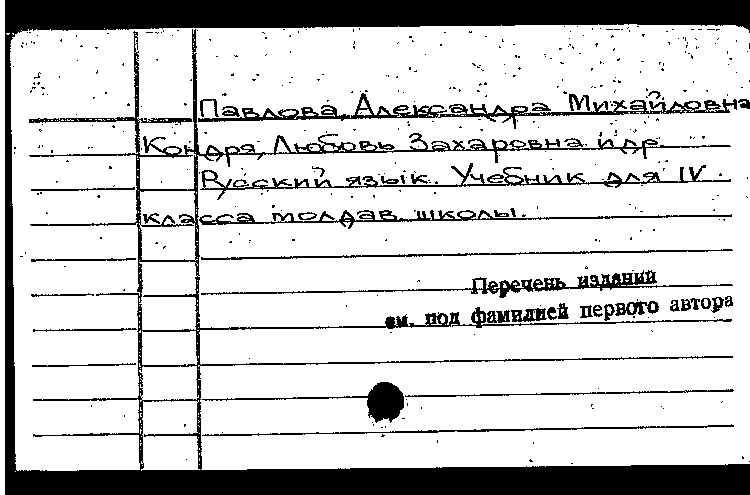 Павлова, Александра Михайловна
Кондря, Любовь Захаровна и др.
Русский язык. Учебник для IV
класса молдав. школы.
Перечень издании
см. под фамилией первого автора